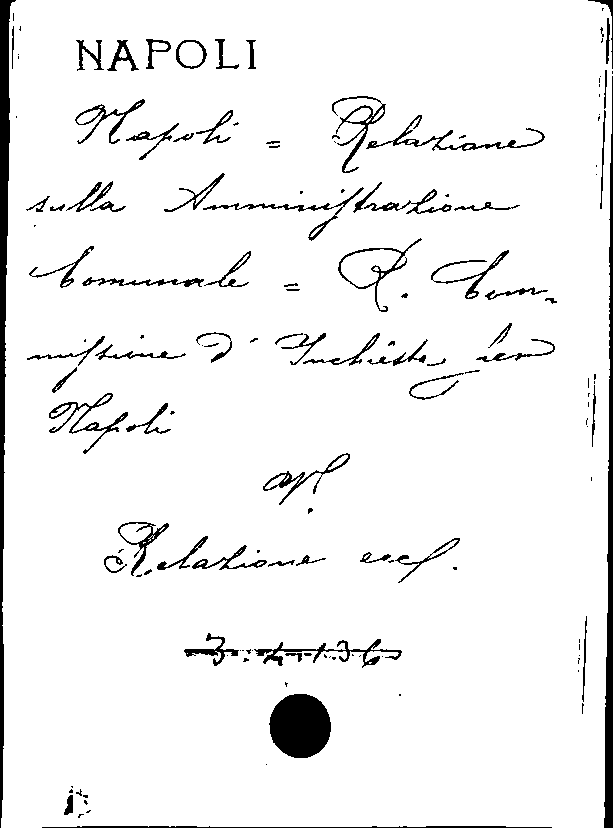 NAPOLI
Napoli = Relazione
sulla Amministrazione
Comunale = R. Com-
missione d'Inchiesta per
Napoli
V.
Relazione ecc.
3.4.136